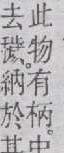 此物有柄。中
去穢。納於其